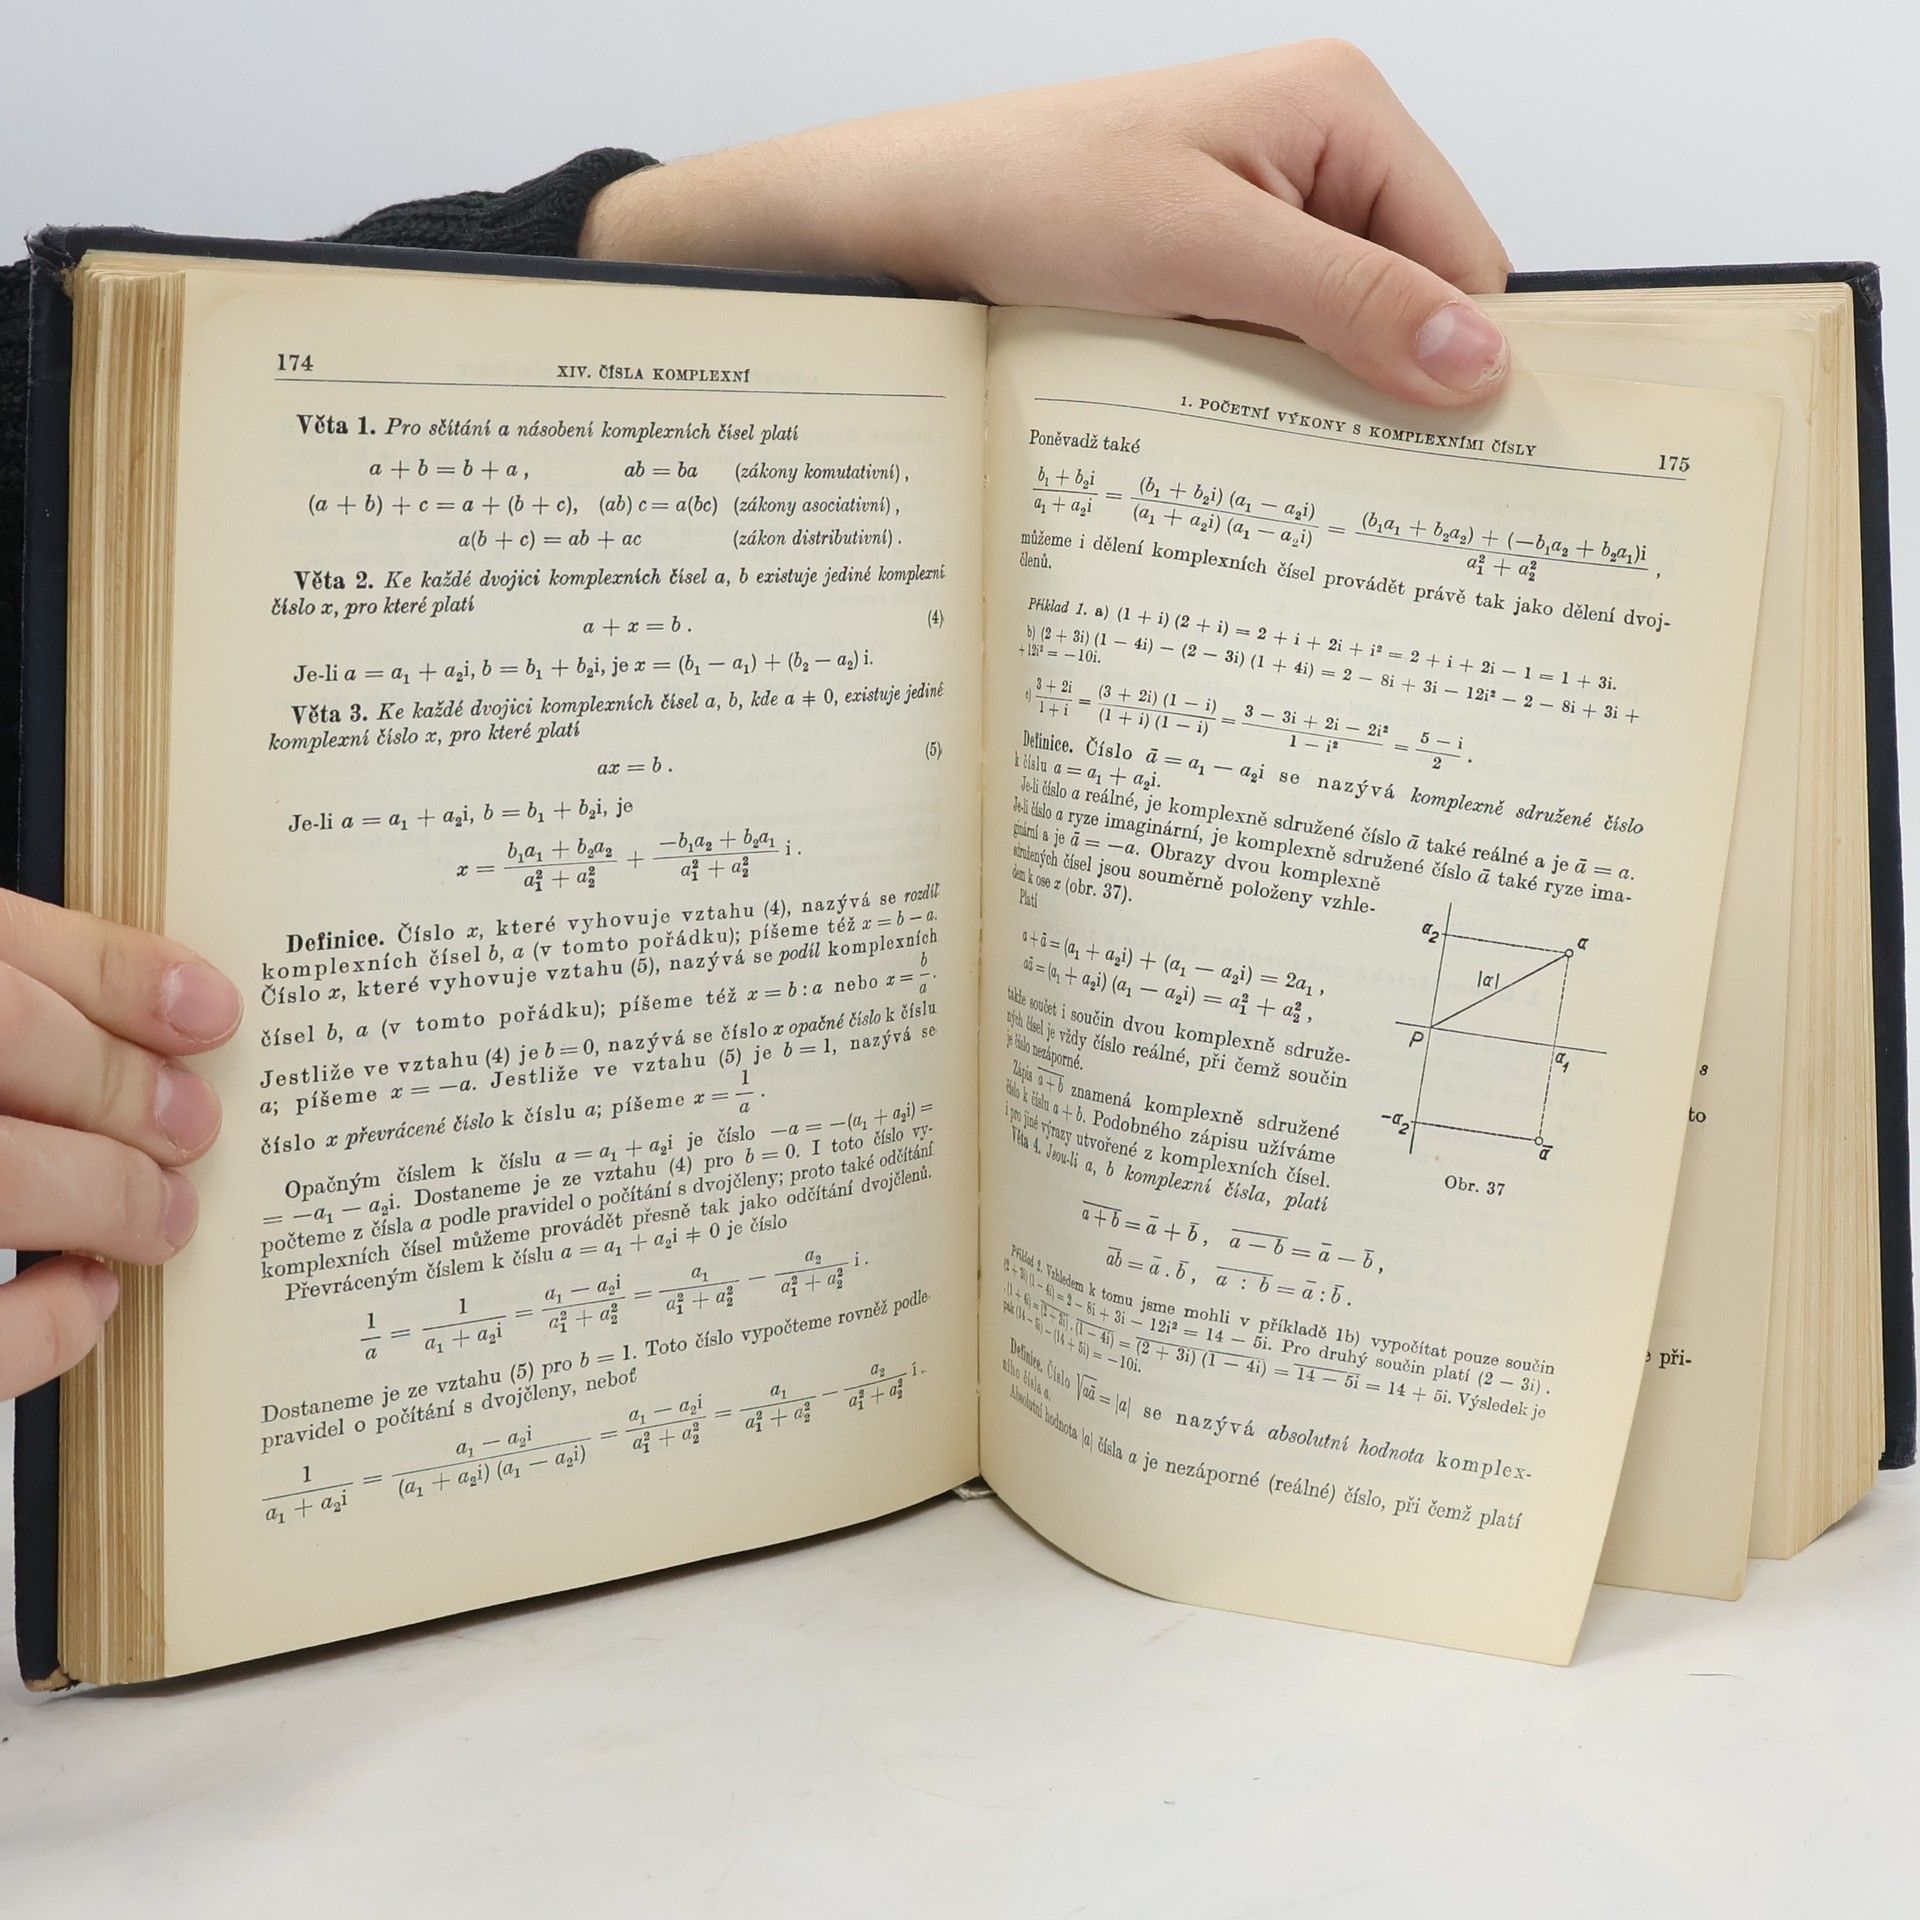 174
XIV. ČÍSLA KOMPLEXNÍ
Věta 1. Pro sčítání a násobení komplexních čísel platí
a + b = b + a , ab = ba (zákony komutativní) ,
(a + b) + c = a + (b + c), (ab) c = a(bc) (zákony asociativní) ,
a(b + c) = ab + ac (zákon distributivní) .
Věta 2. Ke každé dvojici komplexních čísel a, b existuje jediné komplexní
číslo x, pro které platí
a + x = b . (4)
Je-li a = a₁ + a₂i, b = b₁ + b₂i, je x = (b₁ − a₁) + (b₂ − a₂) i.
Věta 3. Ke každé dvojici komplexních čísel a, b, kde a ≠ 0, existuje jediné
komplexní číslo x, pro které platí
ax = b . (5)
Je-li a = a₁ + a₂i, b = b₁ + b₂i, je
x = (b₁a₁ + b₂a₂)/(a₁² + a₂²) + (−b₁a₂ + b₂a₁)/(a₁² + a₂²) i .
Definice. Číslo x, které vyhovuje vztahu (4), nazývá se rozdíl
komplexních čísel b, a (v tomto pořádku); píšeme též x = b − a.
Číslo x, které vyhovuje vztahu (5), nazývá se podíl komplexních
čísel b, a (v tomto pořádku); píšeme též x = b : a nebo x = b/a.
Jestliže ve vztahu (4) je b = 0, nazývá se číslo x opačné číslo k číslu
a; píšeme x = −a. Jestliže ve vztahu (5) je b = 1, nazývá se
číslo x převrácené číslo k číslu a; píšeme x = 1/a .
Opačným číslem k číslu a = a₁ + a₂i je číslo −a = −(a₁ + a₂i) =
= −a₁ − a₂i. Dostaneme je ze vztahu (4) pro b = 0. I toto číslo vy-
počteme z čísla a podle pravidel o počítání s dvojčleny; proto také odčítání
komplexních čísel můžeme provádět přesně tak jako odčítání dvojčlenů.
Převráceným číslem k číslu a = a₁ + a₂i ≠ 0 je číslo
1/a = 1/(a₁ + a₂i) = (a₁ − a₂i)/(a₁² + a₂²) = a₁/(a₁² + a₂²) − a₂/(a₁² + a₂²) i .
Dostaneme je ze vztahu (5) pro b = 1. Toto číslo vypočteme rovněž podle
pravidel o počítání s dvojčleny, neboť
1/(a₁ + a₂i) = (a₁ − a₂i)/((a₁ + a₂i) (a₁ − a₂i)) = (a₁ − a₂i)/(a₁² + a₂²) = a₁/(a₁² + a₂²) − a₂/(a₁² + a₂²) i.
1. POČETNÍ VÝKONY S KOMPLEXNÍMI ČÍSLY
175
Poněvadž také
(b₁ + b₂i)/(a₁ + a₂i) = ((b₁ + b₂i) (a₁ − a₂i))/((a₁ + a₂i) (a₁ − a₂i)) = ((b₁a₁ + b₂a₂) + (−b₁a₂ + b₂a₁)i)/(a₁² + a₂²) ,
můžeme i dělení komplexních čísel provádět právě tak jako dělení dvoj-
členů.
Příklad 1. a) (1 + i) (2 + i) = 2 + i + 2i + i² = 2 + i + 2i − 1 = 1 + 3i.
b) (2 + 3i) (1 − 4i) − (2 − 3i) (1 + 4i) = 2 − 8i + 3i − 12i² − 2 − 8i + 3i +
+12i² = −10i.
c) (3 + 2i)/(1 + i) = ((3 + 2i) (1 − i))/((1 + i) (1 − i)) = (3 − 3i + 2i − 2i²)/(1 − i²) = (5 − i)/2 .
Definice. Číslo ā = a₁ − a₂i se nazývá komplexně sdružené číslo
k číslu a = a₁ + a₂i.
Je-li číslo a reálné, je komplexně sdružené číslo ā také reálné a je ā = a.
Je-li číslo a ryze imaginární, je komplexně sdružené číslo ā také ryze ima-
ginární a je ā = −a. Obrazy dvou komplexně
sdružených čísel jsou souměrně položeny vzhle-
dem k ose x (obr. 37).
Platí
a + ā = (a₁ + a₂i) + (a₁ − a₂i) = 2a₁ ,
aā = (a₁ + a₂i) (a₁ − a₂i) = a₁² + a₂² ,
takže součet i součin dvou komplexně sdruže-
ných čísel je vždy číslo reálné, při čemž součin
je číslo nezáporné.
Zápis a̅+̅b̅ znamená komplexně sdružené
číslo k číslu a + b. Podobného zápisu užíváme
i pro jiné výrazy utvořené z komplexních čísel.
Věta 4. Jsou-li a, b komplexní čísla, platí
a̅+̅b̅ = ā + b̄ , a̅−̅b̅ = ā − b̄ ,
a̅b̅ = ā . b̄ , a̅:̅b̅ = ā : b̄ .
a₂
a
|a|
P
a₁
−a₂
ā
Obr. 37
Příklad 2. Vzhledem k tomu jsme mohli v příkladě 1b) vypočítat pouze součin
(2 + 3i) (1 − 4i) = 2 − 8i + 3i − 12i² = 14 − 5i. Pro druhý součin platí (2 − 3i) .
. (1 + 4i) = (2̅+̅3̅i̅) . (1̅−̅4̅i̅) = (̅2̅+̅3̅i̅)̅(̅1̅−̅4̅i̅)̅ = 1̅4̅−̅5̅i̅ = 14 + 5i. Výsledek je
pak (14 − 5i) − (14 + 5i) = −10i.
Definice. Číslo √aā = |a| se nazývá absolutní hodnota komplex-
ního čísla a.
Absolutní hodnota |a| čísla a je nezáporné (reálné) číslo, při čemž platí
s
to
při-